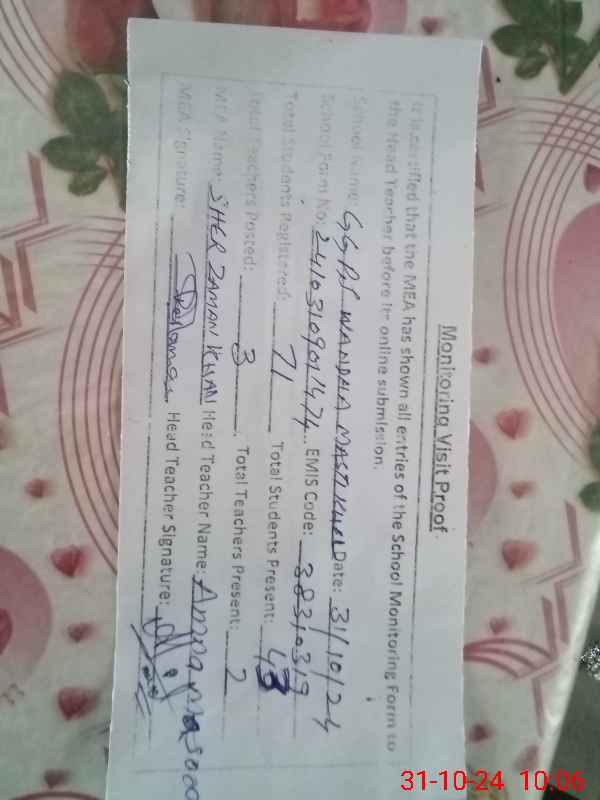 Monitoring Visit Proof
It is certified that the MEA has shown all entries of the School Monitoring Form to
the Head Teacher before its online submission.
School Name: GGPS WANDHA MASTI KHEL Date: 31/10/24
School Form No: EMIS Code: 38310319
Total Students Registered: 71 Total Students Present: 43
Total Teachers Posted: 3. Total Teachers Present: 2
MEA Name: SHER ZAMAN KHAN Head Teacher Name:
MEA Signature: Head Teacher Signature:
31-10-24 10:06